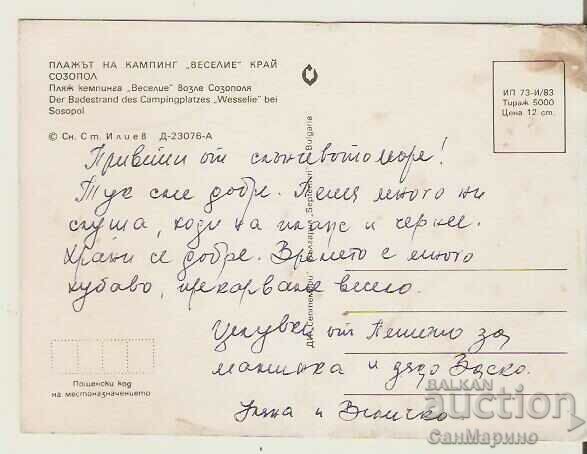 ПЛАЖЪТ НА КАМПИНГ „ВЕСЕЛИЕ" КРАЙ
СОЗОПОЛ
Пляж кемпинга „Веселие" возле Созополя
Der Badestrand des Campingplatzes „Wesselie" bei
Sosopol
© Сн. Ст. Илиев Д-23076-А
ИП 73-И/83
Тираж 5000
Цена 12 ст.
ДИК „Септември" България „Septemvri" Bulgaria
Привети от слънчевото море!
Тук сме добре. Пепи много ни
слуша, ходи на плаж и черней.
Храни се добре. Времето е много
хубаво, прекарваме весело.
Целувки от Пепито за
маминка и дядо Васко.
и Величко
Пощенски код
на местоназначението
BALKAN
auction
СанМарино